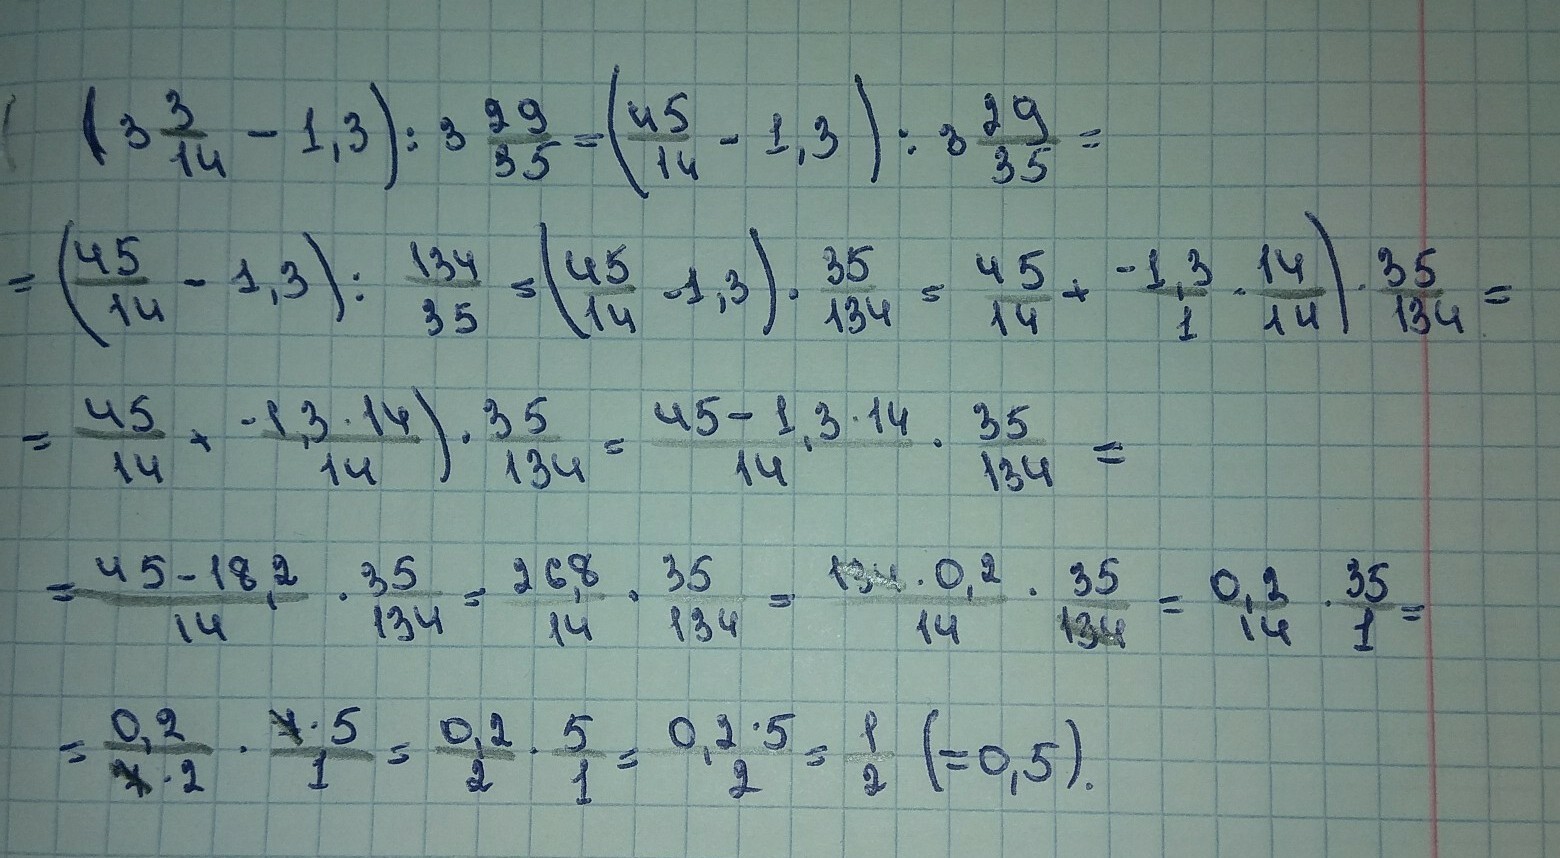 (3 3/14 - 1,3) : 3 29/35 = (45/14 - 1,3) : 3 29/35 =
= (45/14 - 1,3) : 134/35 = (45/14 - 1,3) · 35/134 = 45/14 + -1,3/1 · 14/14) · 35/134 =
= 45/14 + -1,3·14/14) · 35/134 = 45-1,3·14/14 · 35/134 =
= 45-18,2/14 · 35/134 = 26,8/14 · 35/134 = 134·0,2/14 · 35/134 = 0,2/14 · 35/1 =
= 0,2/7·2 · 7·5/1 = 0,2/2 · 5/1 = 0,2·5/2 = 1/2 (=0,5).